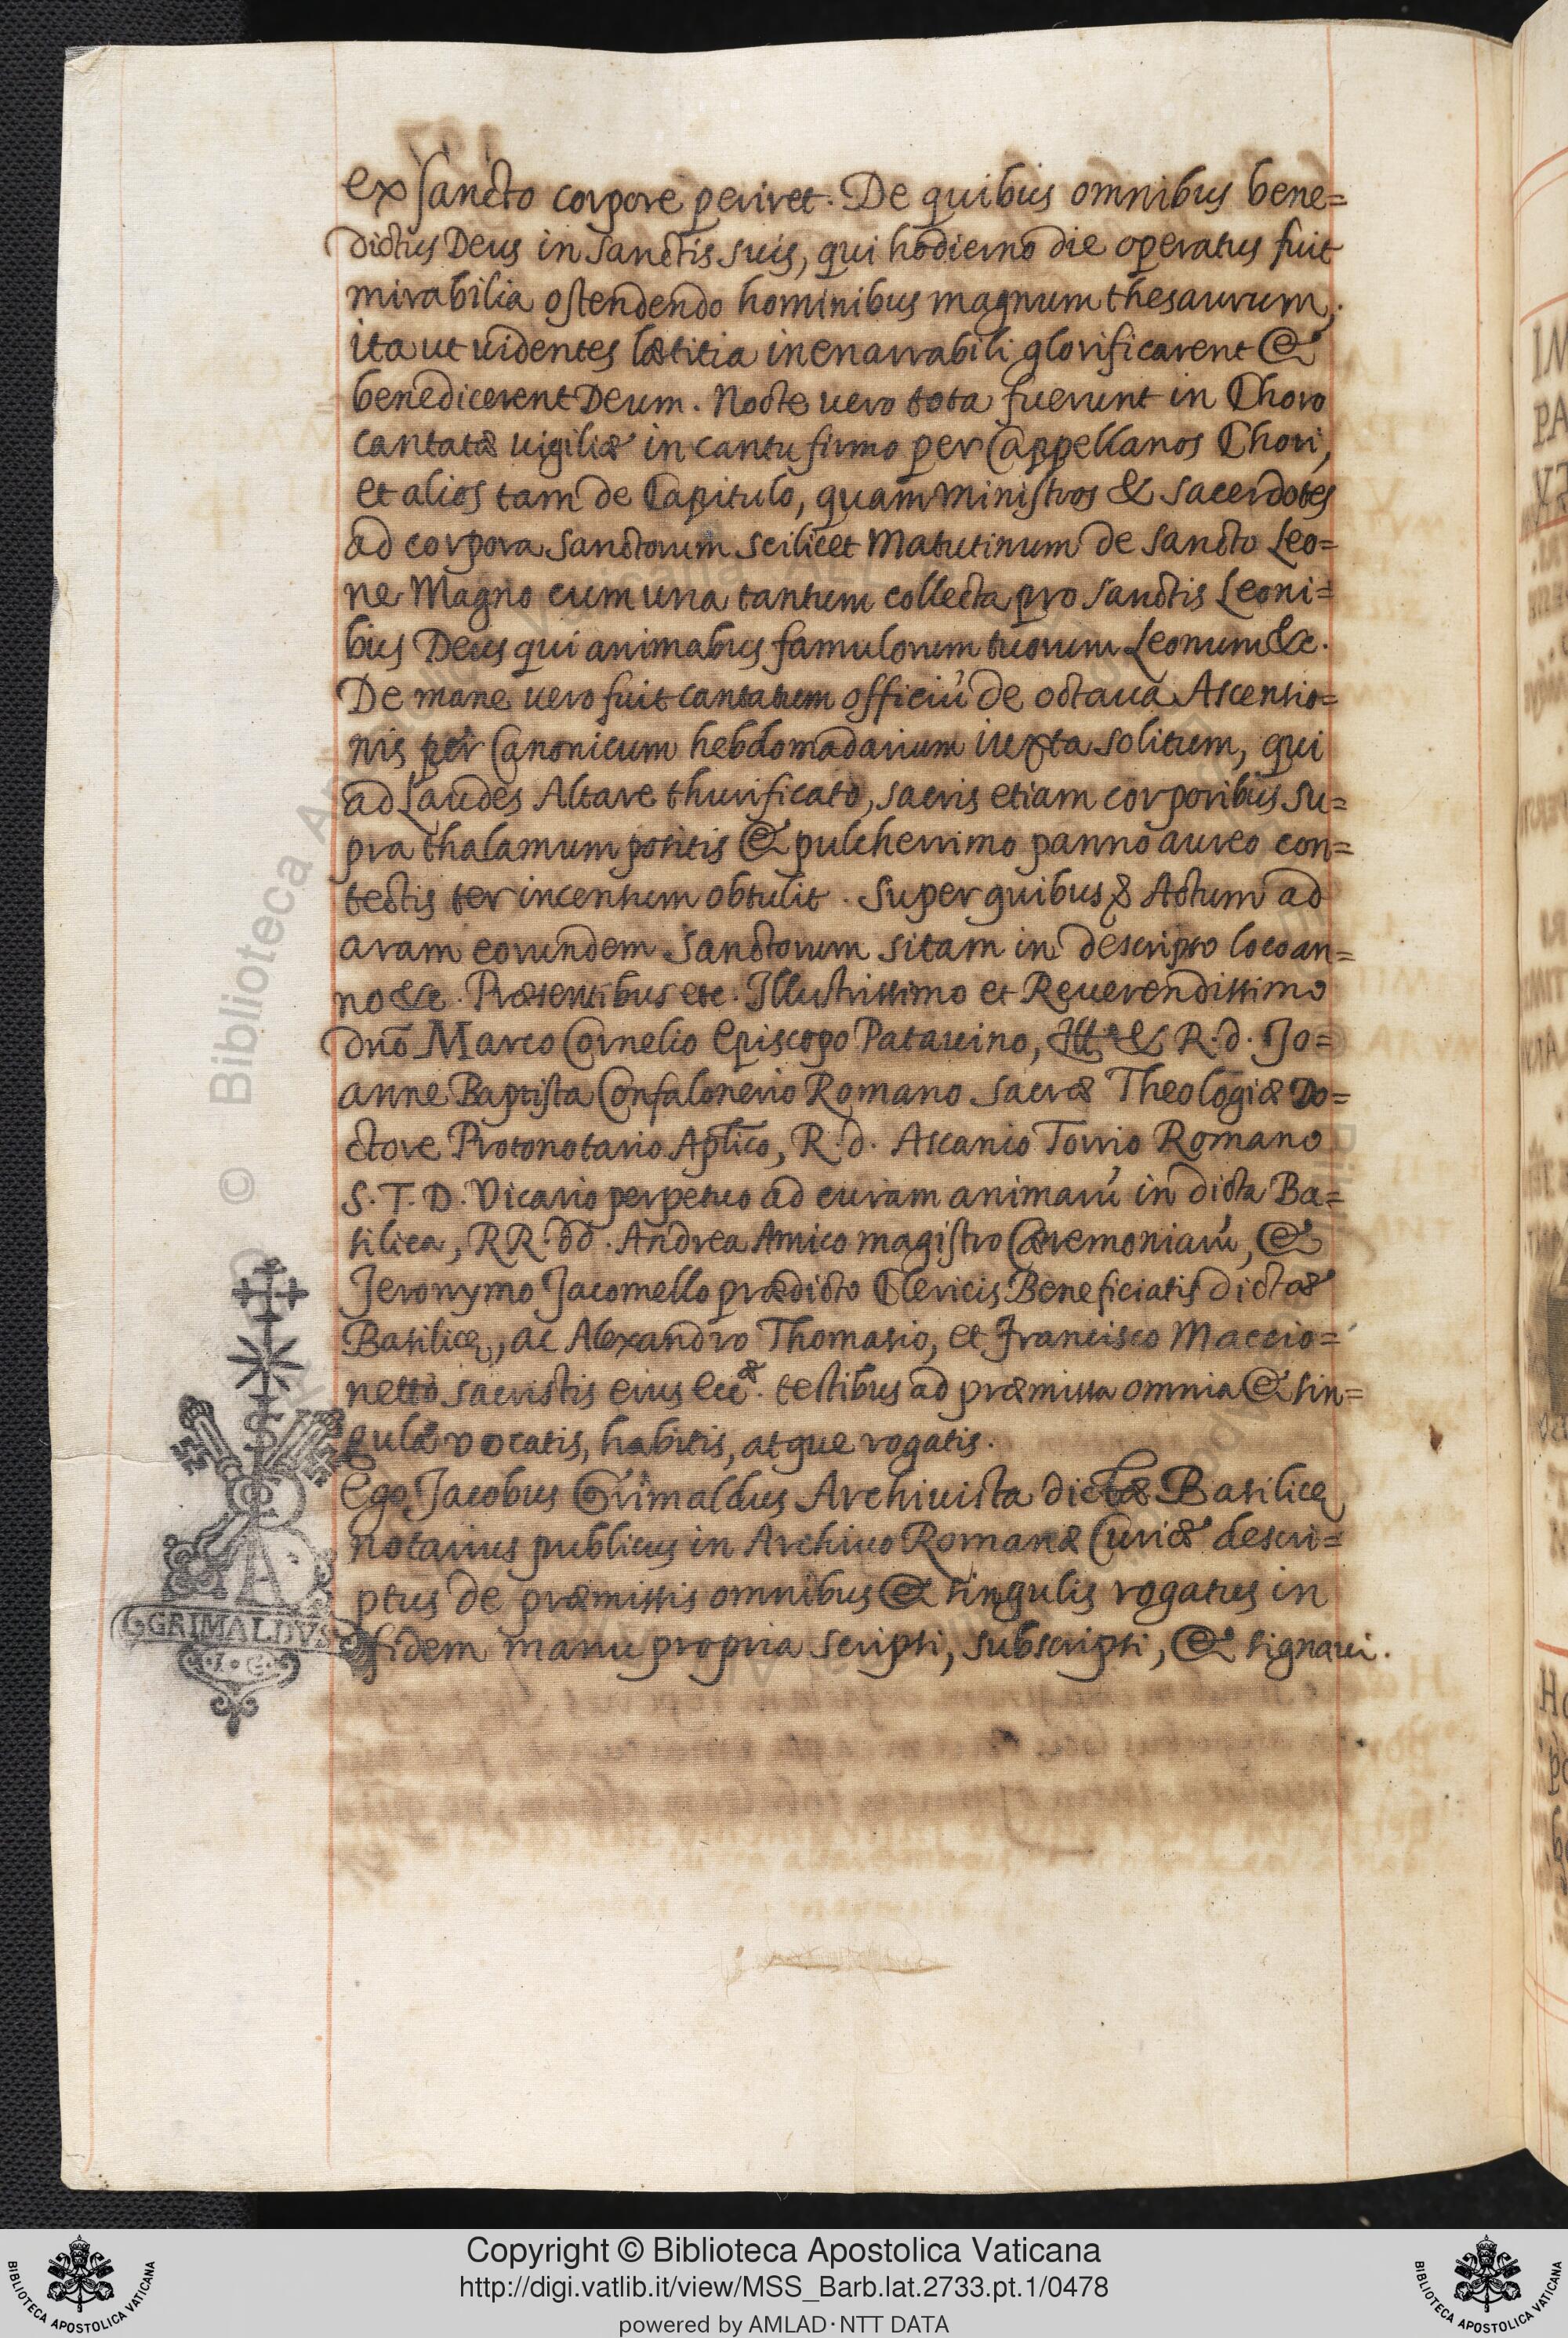 ex sancto corpore periret. De quibus omnibus bene=
dictus Deus in sanctis suis, qui hodierno die operatus fuit
mirabilia ostendendo hominibus magnum thesaurum;
ita ut uidentes lætitia inenarrabili glorificarent &
benedicerent Deum. Nocte uero tota fuerunt in Choro
cantatæ uigiliæ in cantu firmo per Cappellanos Chori,
et alios tam de Capitulo, quam ministros & sacerdotes
ad corpora Sanctorum scilicet Matutinum de sancto Leo=
ne Magno cum una tantum collecta pro sanctis Leoni=
bus Deus qui animabus famulorum tuorum Leonum &c.
De mane uero fuit cantatum officiũ de octaua Ascensio=
nis per Canonicum hebdomadarium iuxta solitum, qui
ad Laudes Altare thurificato, sacris etiam corporibus su=
pra thalamum positis & pulcherrimo panno aureo con=
tectis ter incensum obtulit. Super quibus & Actum ad
aram eorundem Sanctorum sitam in descripto loco an=
no &c. Præsentibus etc. Illustrissimo et Reuerendissimo
dnõ Marco Cornelio Episcopo Patauino, & R. d. Jo=
anne Baptista Confalonerio Romano Sacræ Theologiæ Do=
ctore Protonotario Aplico, R. d. Ascanio Torrio Romano
S. T. D. Vicario perpetuo ad curam animarũ in dicta Ba=
silica, RR dd. Andrea Amico magistro Cæremoniarũ, &
Jeronymo Jacomello prædicto Clericis Beneficiatis dictæ
Basilicę, ac Alexandro Thomasio, et Francisco Maccio=
netto sacristis eius ecc. testibus ad præmissa omnia & sin=
gula vocatis, habitis, atque rogatis.
Ego Jacobus Grimaldus Archiuista dictæ Basilicę
notarius publicus in Archiuo Romanæ Curiæ descri=
ptus de præmissis omnibus & singulis rogatus in
fidem manu propria scripsi, subscripsi, & signaui.
GRIMALDVS
I. G.
Copyright © Biblioteca Apostolica Vaticana
http://digi.vatlib.it/view/MSS_Barb.lat.2733.pt.1/0478
powered by AMLAD·NTT DATA
BIBLIOTECA APOSTOLICA VATICANA
BIBLIOTECA APOSTOLICA VATICANA